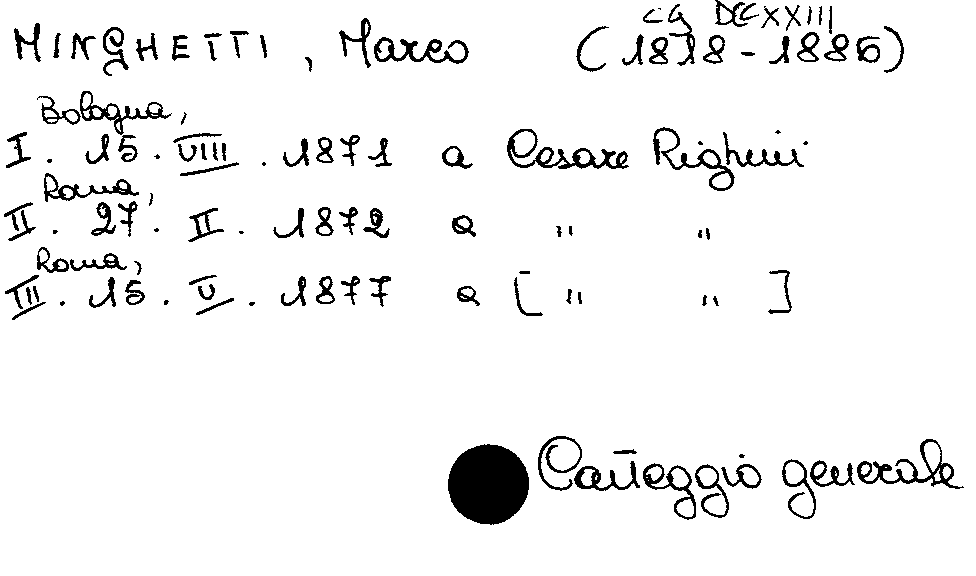 CG DCCXXIII
MINGHETTI, Marco (1818-1886)
Bologna,
I. 15. VIII. 1871 a Cesare Righini
Roma,
II. 27. II. 1872 a " "
Roma,
III. 15. V. 1877 a [ " " ]
Carteggio generale